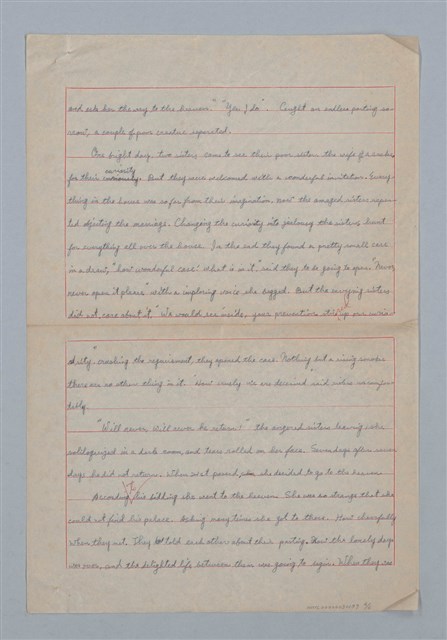 and asks her the way to the heaven" "Yes I do". Caught an endless parting
a couple of poor creative separated.
One bright day, two sisters came to see their poor sister the wife of a snake,
for their curiosity. But they were welcomed with a wonderful invitation. Every-
thing in the house was so far from their inspiration, now the amazed sisters
the marriage. Changing the curiosity into jealousy the sisters hunt
for everything all over the house. In the end they found a pretty small case
in a desert, "how wonderful case! What is in it" said they to be going to open. "Never
never open it please" with a imploring voice she begged. But the envying sisters
did not care about it. "We would see inside, your prevention stirs up our curio-
sity". crashing the requirement, they opened the case. Nothing but a
there was no other thing in it. "How we are deceived" said
tably.
"Will never will never he return!" the angered sisters leaving she
soliloquized in a dark room and tears rolled on her face. Some days after
days he did not return. When next passed, she decided to go to the heaven
According to his bidding she went to the heaven. She was so strange that she
could not find his palace. Asking many times she got to there. How cheerfully
when they met. They told each other about their parting. Now the lonely days
was over, and the delighted life between them was going to begin. When they was